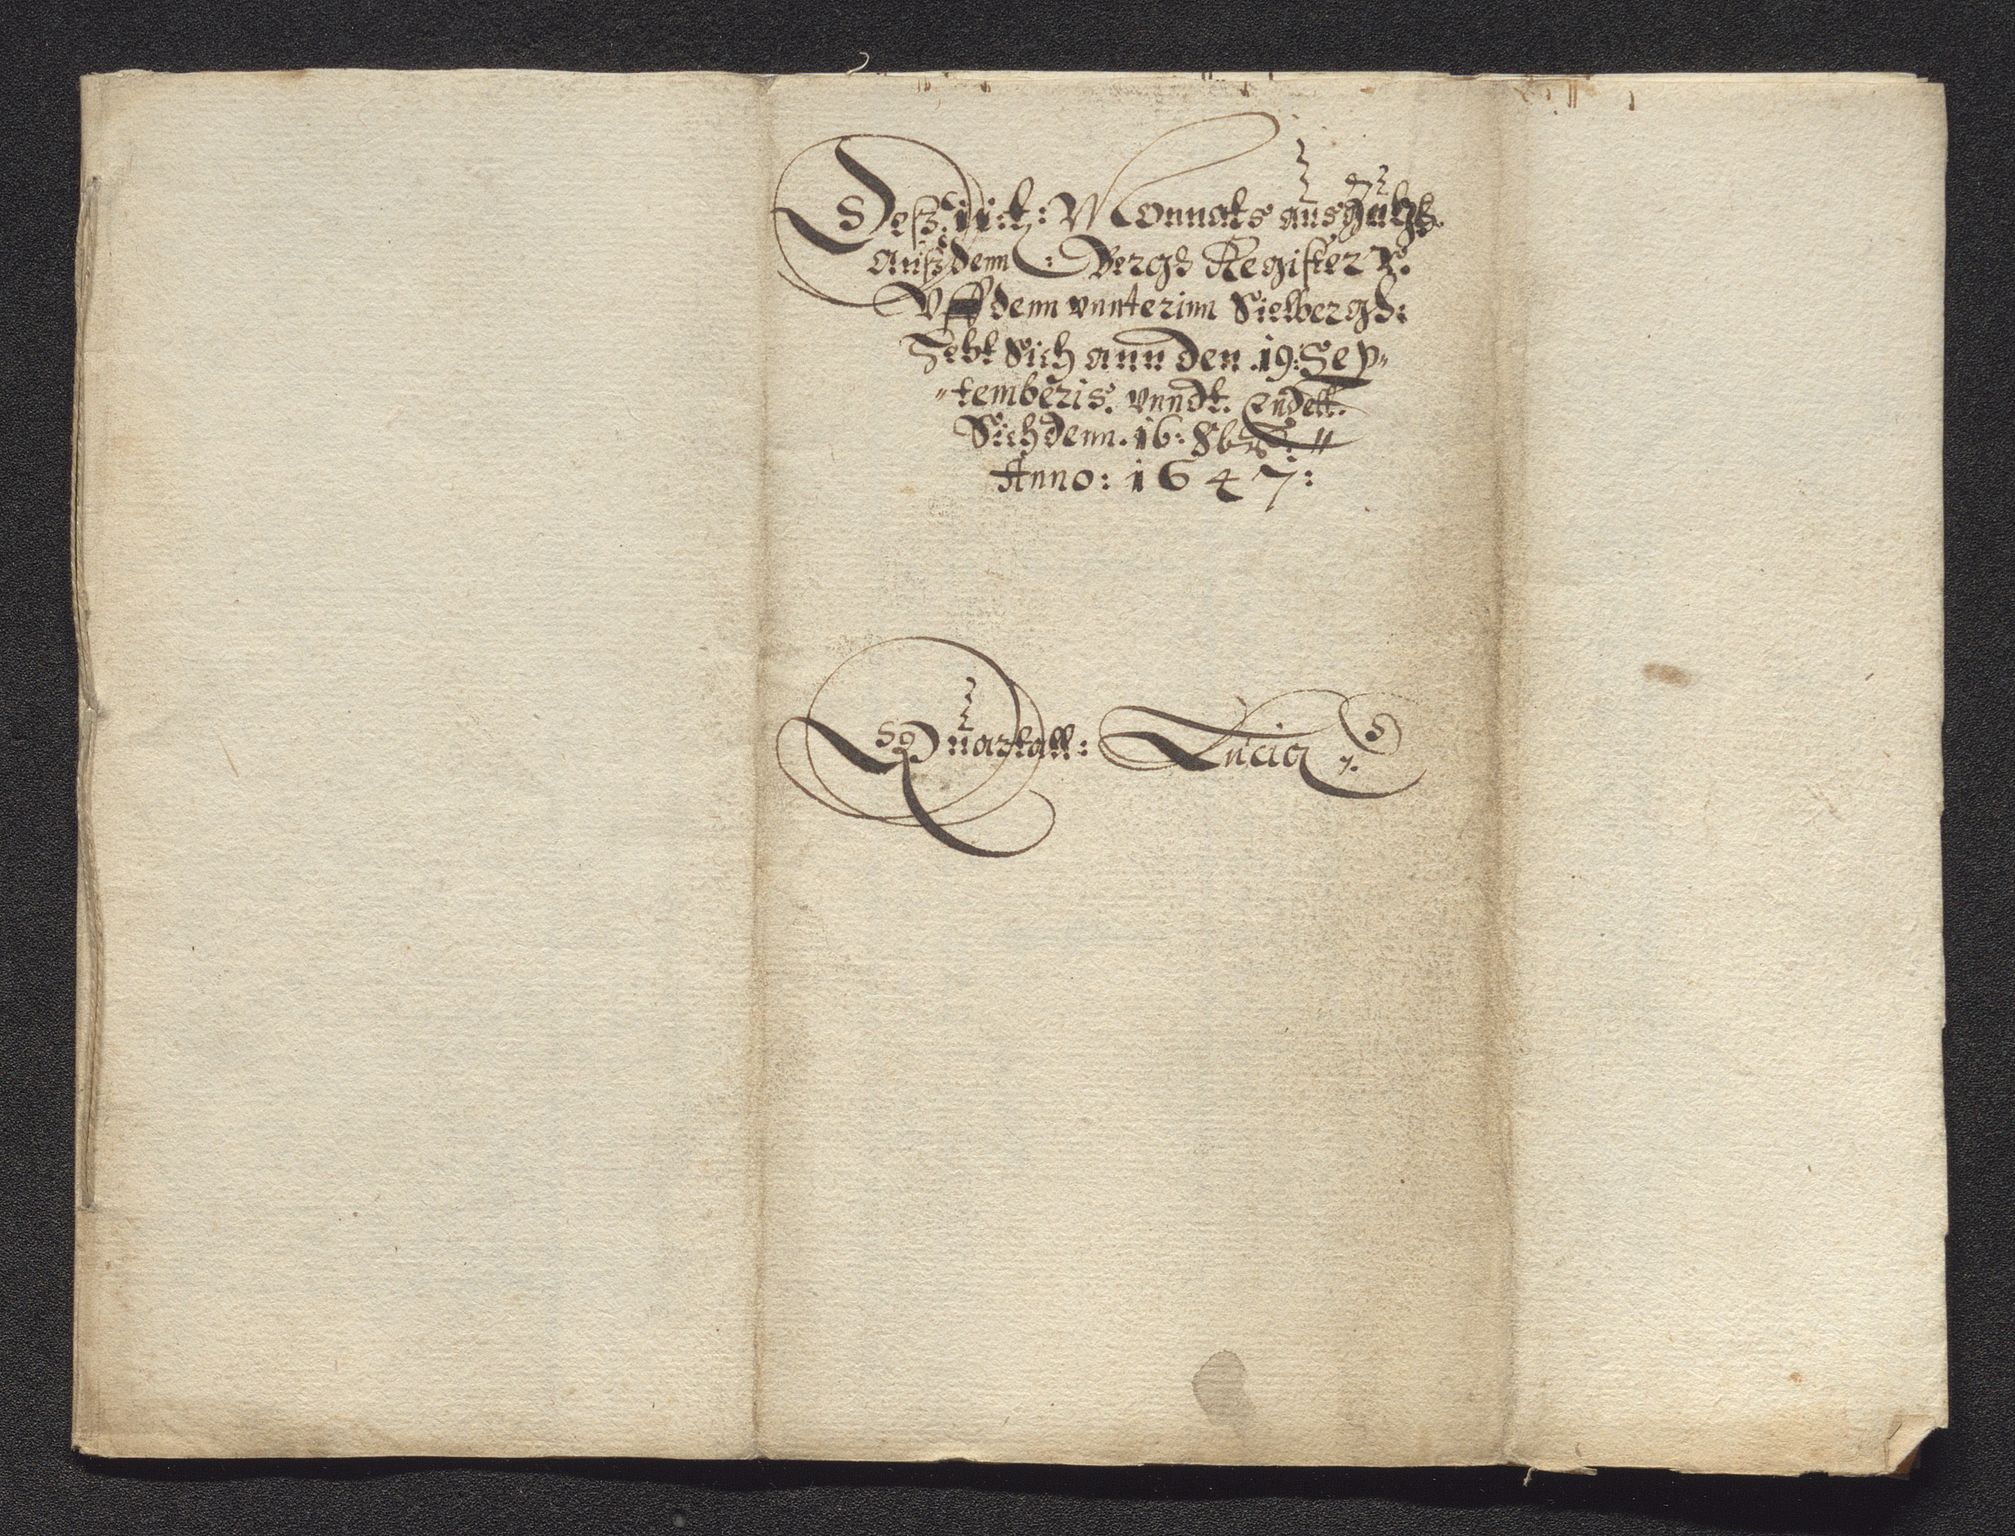 Deß 11t: Monnats ausZuchtz.
Auß denn: Bergs Register r.
Vff denn vnnterinn Sielbergs:
Hebt Sich ann den .19: Sep=
=temberis. vnndt. Endett.
Sich denn. 16: 8brs.
Anno: 1647:
Quartall: Lucia